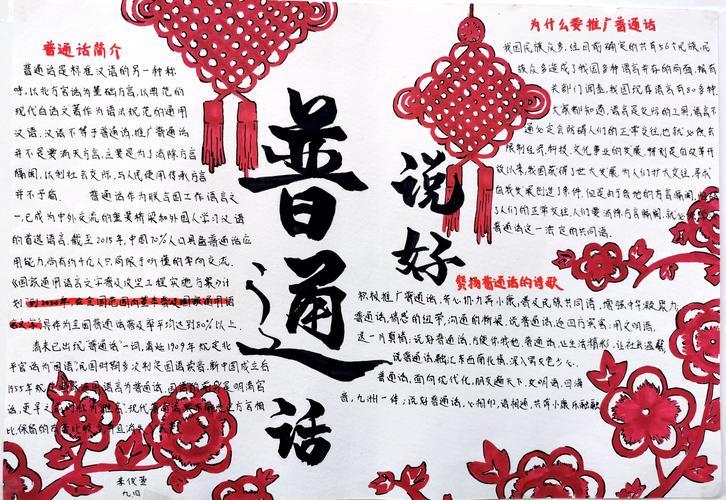 普通话简介
普通话是标准汉语的另一种称
呼,以北方官话为基础方言,以典范的
现代白话文著作为语法规范的通用
汉语。汉语不等于普通话,推广普通话
并不是要消灭方言,主要是为了消除方言
隔阂,以利社会交际,与人民使用传承方言
并不矛盾。 普通话作为联合国工作语言之
一,已成为中外交流的重要桥梁和外国人学习汉语
的首选语言。截至2015年,中国70%人口具备普通话应
用能力,尚有约4亿人只局限于听懂的单向交流。
《国家通用语言文字普及攻坚工程实施方案》计
划到2020年,在全国范围内基本普及国家通用语
言文字,具体为全国普通话普及率平均达到80%以上。
清末已出现"普通话"一词,清廷1909年规定北
平官话为"国语",民国时期多次制定国语读音,新中国成立后
1955年
普
通
话
说
好
为什么要推广普通话
我国民族众多,经目前确定的共有56个民族,民
族众多造成了我国多种语言并存的局面,据有
关部门调查,我国现存语言有80多种。
大家都知道,语言是交际的工具,语言不
通必定会防碍人们的正常交往,也就必然会
限制经济、科技、文化事业的发展。特别是自改革开
放以来,我国获得了巨大发展,为人们扩大交往、寻求
自我发展创造了条件,但是由于各地的方言隔阂,
了人们的正常交往,人们要消除方言隔阂,就必
普通话这一法定的共同语。
赞扬普通话的诗歌
积极推广普通话,齐心协力奔小康,普及民族共同语,增强中华凝聚力
普通话,情感的纽带,沟通的桥梁,说普通话,迎四方宾客;用文明语,
送一片真情;说好普通话,方便你我他,普通话,让生活精彩,让社会温馨,
说普通话融汇东西南北情,深入男女老少心。
普通话,面向现代化,朋友遍天下,文明语,四海
音,九州一体;说好普通话,心相印,语相通,共奔小康乐融融
九四